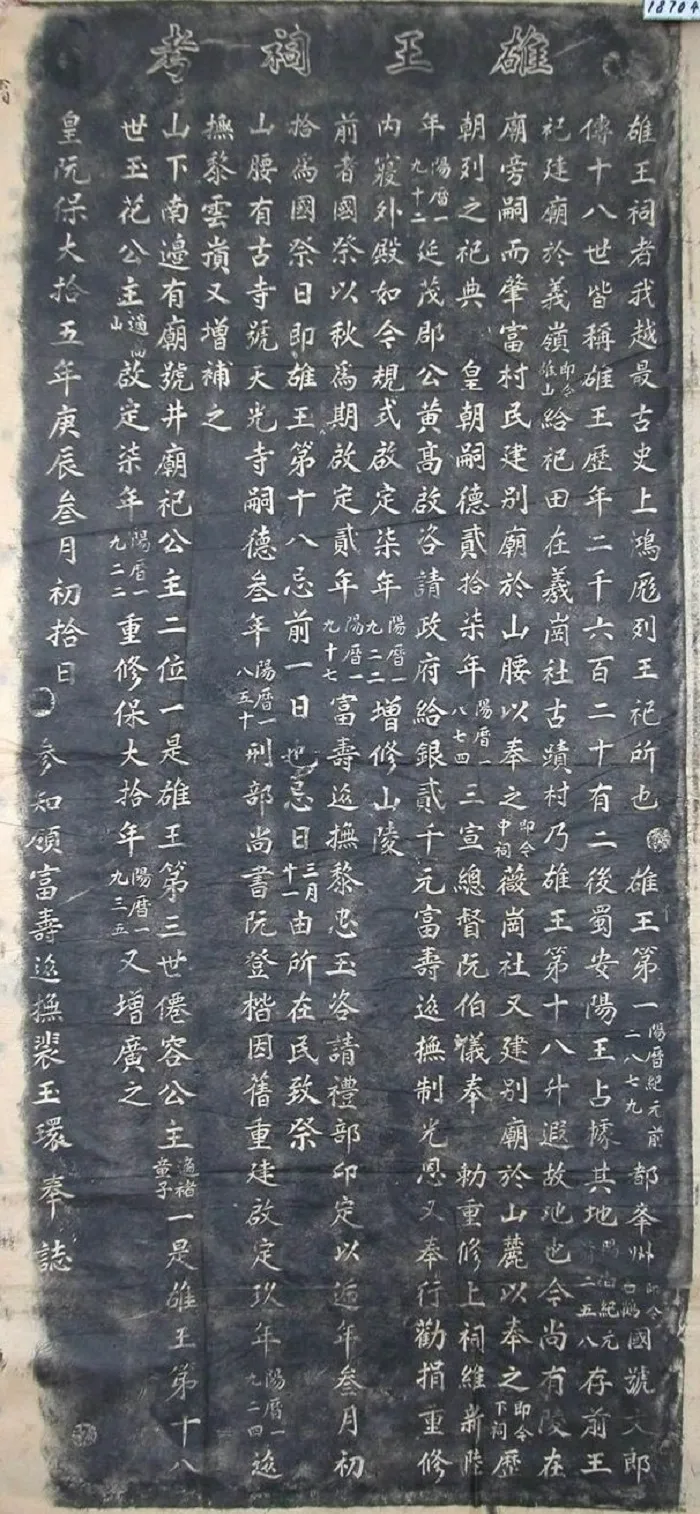 雄王祠考
雄王祠者我越最古史上鴻厖列王祀所也 雄王第一陽曆紀元前二八七九都峯州即今白鶴國號文郎
傳十八世皆稱雄王歷年二千六百二十有二後蜀安陽王占據其地陽曆紀元前二五八存前王
祀建廟於義嶺即今雄山給祀田在羲崗社古蹟村乃雄王第十八升遐故地也今尚有陵在
廟旁嗣而肇富村民建別廟於山腰以奉之即今中祠薇崗社又建別廟於山麓以奉之即今下祠歷
朝列之祀典 皇朝嗣德貳拾柒年陽曆一八七四三宣總督阮伯儀奉 勅重修上祠維新陸
年陽曆一九十二延茂郡公黃高啟咨請政府給銀貳千元富壽巡撫制光恩又奉行勸捐重修
內寢外殿如今規式啟定柒年陽曆一九二二增修山陵
前者國祭以秋為期啟定貳年陽曆一九十七富壽巡撫黎忠玉咨請禮部印定以遞年叄月初
拾為國祭日即雄王第十八忌前一日也忌日三月十一由所在民致祭
山腰有古寺號天光寺嗣德叄年陽曆一八五十刑部尚書阮登楷因舊重建啟定玖年陽曆一九二四巡
撫黎雲嶺又增補之
山下南邊有廟號井廟祀公主二位一是雄王第三世僊容公主適褚童子一是雄王第十八
世玉花公主適傘山啟定柒年陽曆一九二二重修保大拾年陽曆一九三五又增廣之
皇阮保大拾五年庚辰叄月初拾日 參知領富壽巡撫裴玉環奉誌